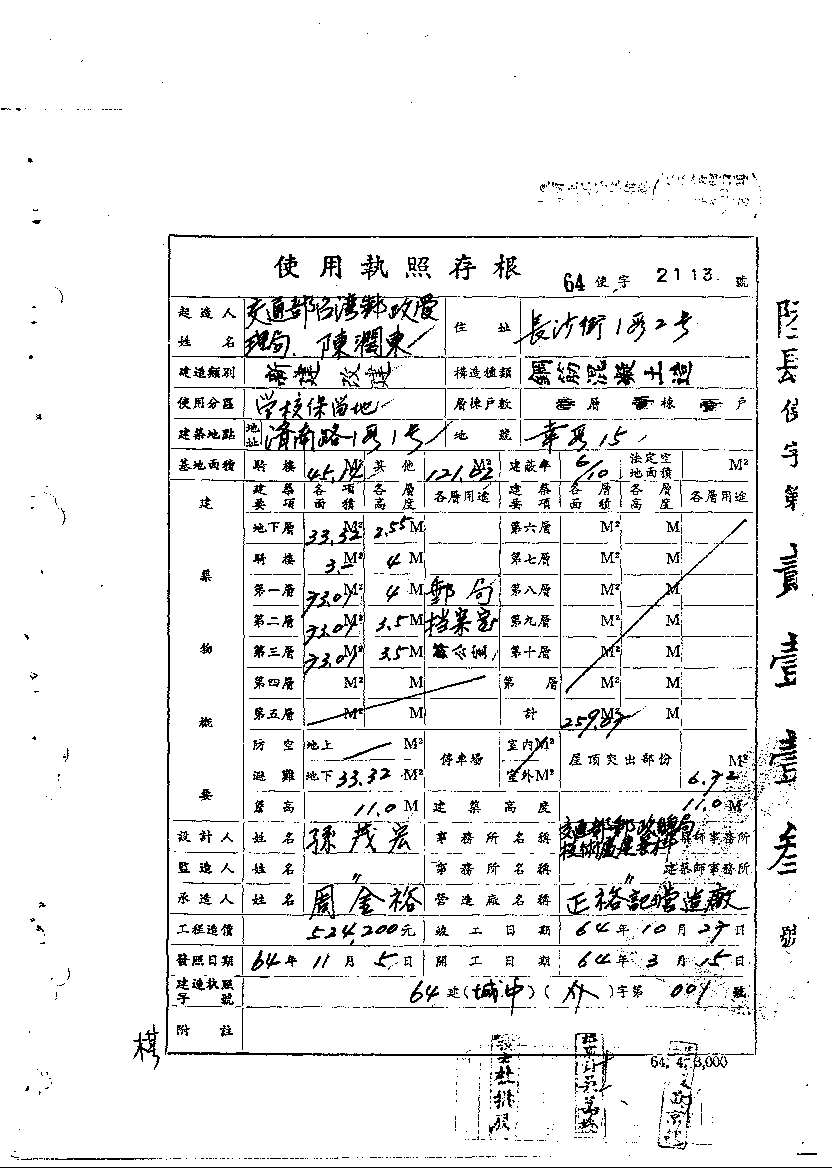 使用執照存根
64 使字 2113. 號
起造人姓名 交通部台湾郵政管理局、陳潤東
住址 長沙街1段2号
建造類別 新建 改建
構造種類 鋼筋混凝土造
使用分區 学校保留地
層棟戶數 層 棟 戶
建築地點 地址 濟南路1段1号
地號 幸段15
基地面積 騎樓 45.12 M² 其他 121.62 M² 建蔽率 6/10 法定空地面積 M²
建築物概要
建築要項 各項面積 各層高度 各層用途 建築要項 各層面積 各層高度 各層用途
地下層 33.32 M² 2.55 M 第六層 M² M
騎樓 3.- M² 4 M 第七層 M² M
第一層 73.07 M² 4 M 郵局 第八層 M² M
第二層 73.07 M² 3.5 M 档案室 第九層 M² M
第三層 73.07 M² 3.5 M 第十層 M² M
第四層 M² M 第 層 M² M
第五層 M² M 計 M² M
防空避難 地上 M² 停車場 室內 M² 屋頂突出部份 M²
地下 33.32 M² 室外 M² 6.72
簷高 11.0 M 建築高度 11.0 M
設計人 姓名 孫茂宏 事務所名稱 建築師事務所
監造人 姓名 〃 事務所名稱 〃 建築師事務所
承造人 姓名 周金裕 營造廠名稱 正裕記營造廠
工程造價 524,200元 竣工日期 64年10月27日
發照日期 64年11月5日 開工日期 64年3月15日
建造執照字號 64建(城中)( )字第 001 號
附註
64. 4. 3,000
陆長使字第貳壹壹叁號